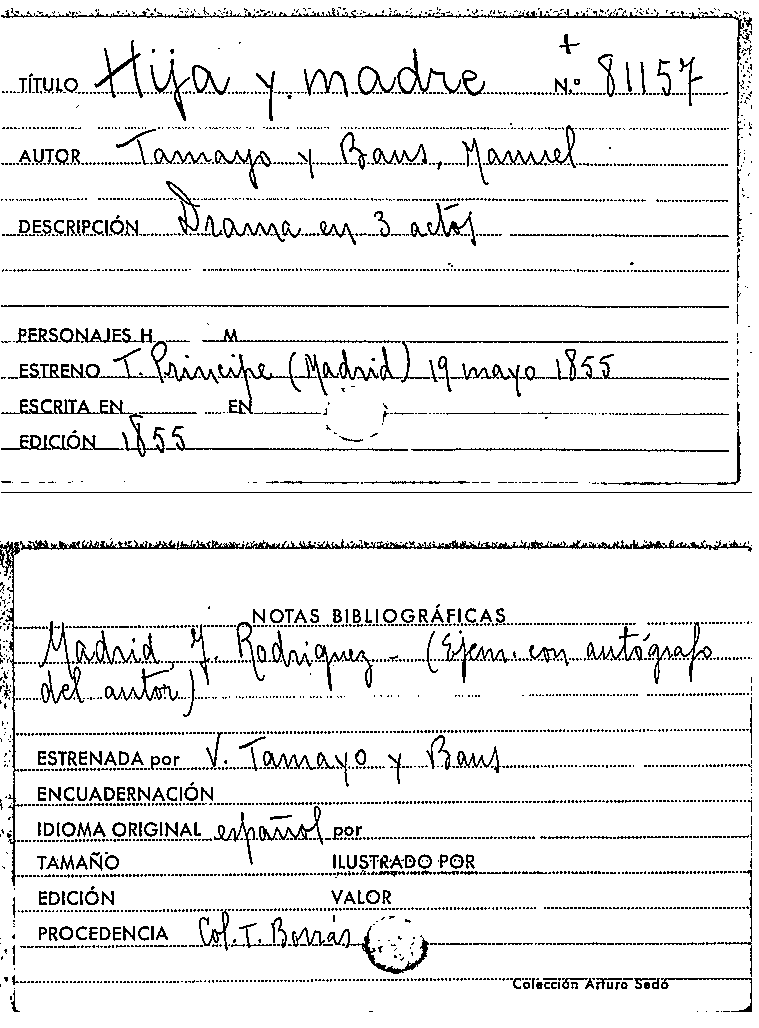 +
TÍTULO Hija y madre N.º 81157
AUTOR Tamayo y Baus, Manuel
DESCRIPCIÓN Drama en 3 actos
PERSONAJES H M
ESTRENO T. Principe (Madrid) 19 mayo 1855
ESCRITA EN EN
EDICIÓN 1855
NOTAS BIBLIOGRÁFICAS
Madrid, J. Rodriguez - (Ejem. con autógrafo
del autor)
ESTRENADA por V. Tamayo y Baus
ENCUADERNACIÓN
IDIOMA ORIGINAL español por
TAMAÑO ILUSTRADO POR
EDICIÓN VALOR
PROCEDENCIA Col. T. Borrás
Colección Arturo Sedó